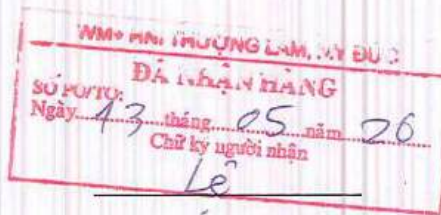 WM+ HNI THƯỢNG LÂM, MỸ ĐỨC
ĐÃ NHẬN HÀNG
SỐ PO/TO:
Ngày 13 tháng 05 năm 26
Chữ ký người nhận
Lê